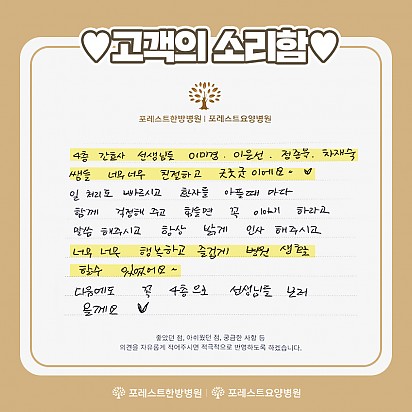 고객의 소리함
포레스트한방병원 | 포레스트요양병원
4층 간호사 선생님들 이미경, 이은선, 정춘묵, 차재숙
쌤들 너무너무 친절하고 굿굿굿이에요~
일 처리도 빠르시고 환자들 아플때 마다
함께 걱정해 주고 힘들면 꼭 이야기 하라고
말씀 해주시고 항상 밝게 인사 해주시고
너무 너무 행복하고 즐겁게 병원 생활
할수 있었어요~
다음에도 꼭 4층으로 선생님들 보러
올게요
좋았던 점, 아쉬웠던 점, 궁금한 사항 등
의견을 자유롭게 적어주시면 적극적으로 반영하도록 하겠습니다.
포레스트한방병원 | 포레스트요양병원